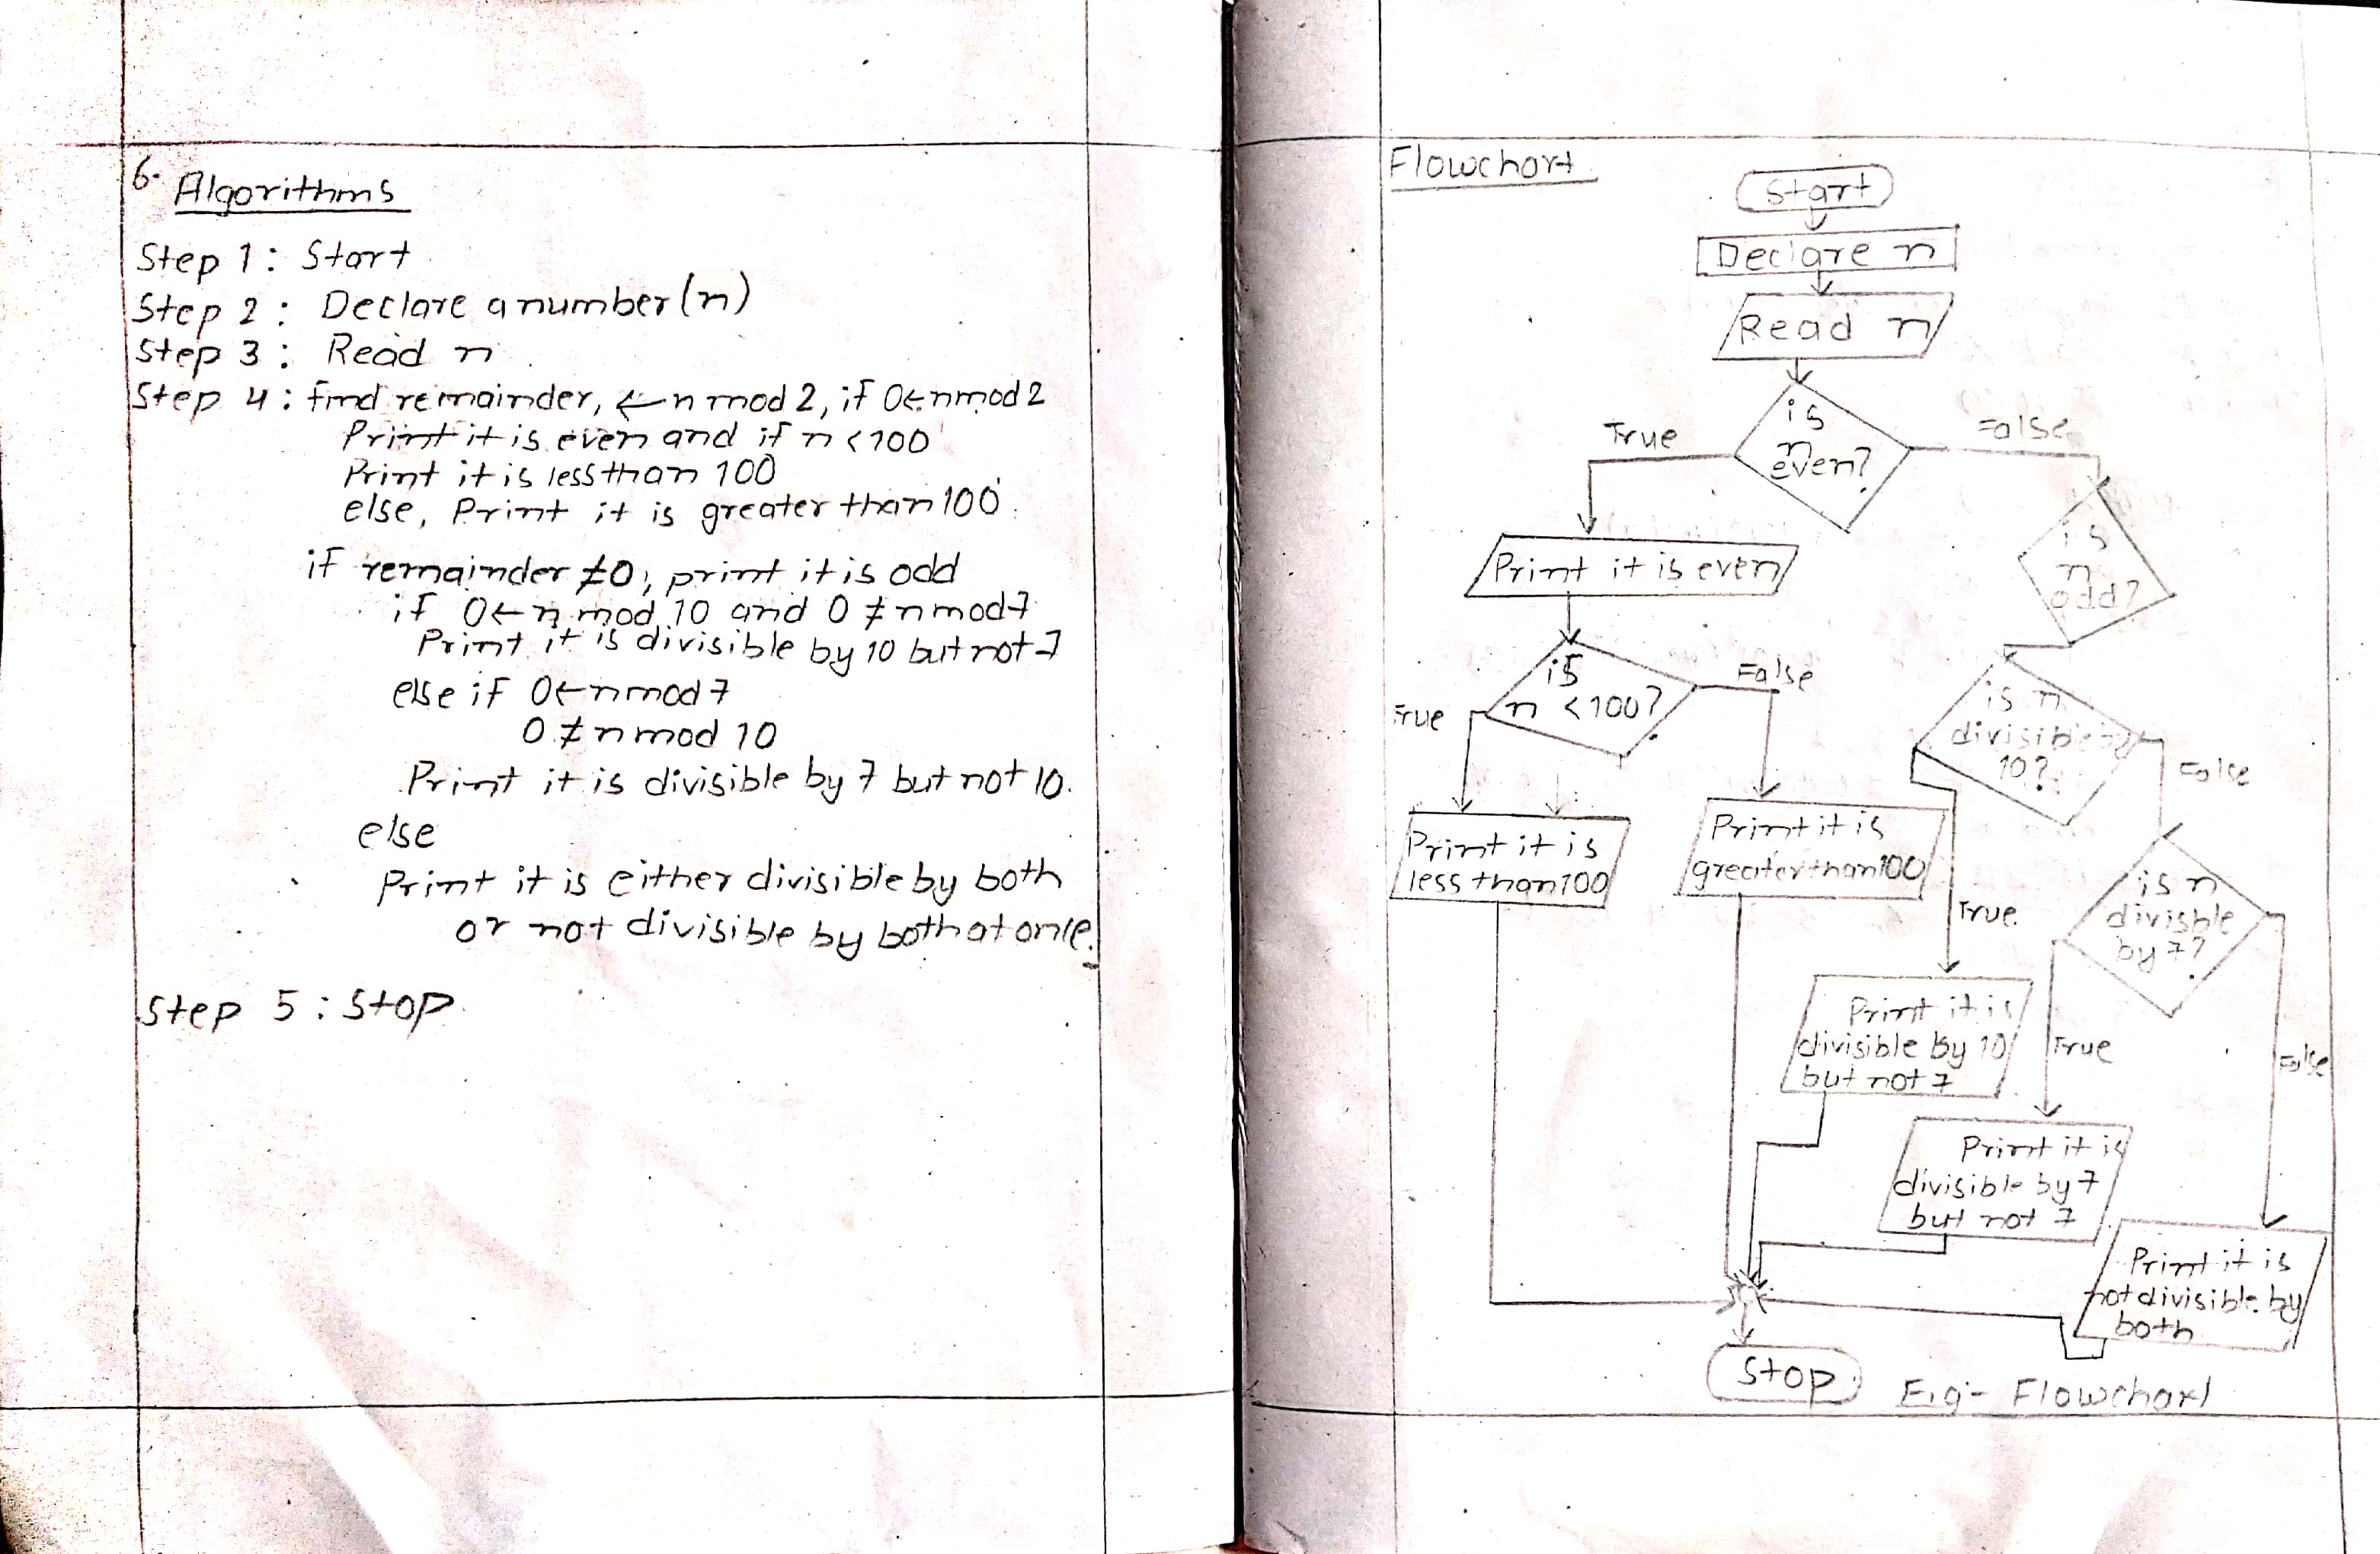 6. Algorithms
Step 1: Start
Step 2: Declare a number(n)
Step 3: Read n
Step 4: find remainder, ← n mod 2, if 0← n mod 2
Print it is even and if n <100
Print it is less than 100
else, Print it is greater than 100.
if remainder ≠0, print it is odd
if 0← n mod 10 and 0 ≠ n mod 7
Print it is divisible by 10 but not 7
else if 0← n mod 7
0 ≠ n mod 10
Print it is divisible by 7 but not 10.
else
Print it is either divisible by both
or not divisible by both at once.
Step 5: Stop
Flowchart
Start
Declare n
Read n
is
n
even?
True
False
Print it is even
is
n
odd?
is
n <100?
True
False
is n
divisible by
10?
False
Print it is
less than 100
Print it is
greater than 100
True
is n
divisble
by 7?
Print it is
divisible by 10
but not 7
True
False
Print it is
divisible by 7
but not 7
Print it is
not divisible by
both
Stop
Fig- Flowchart